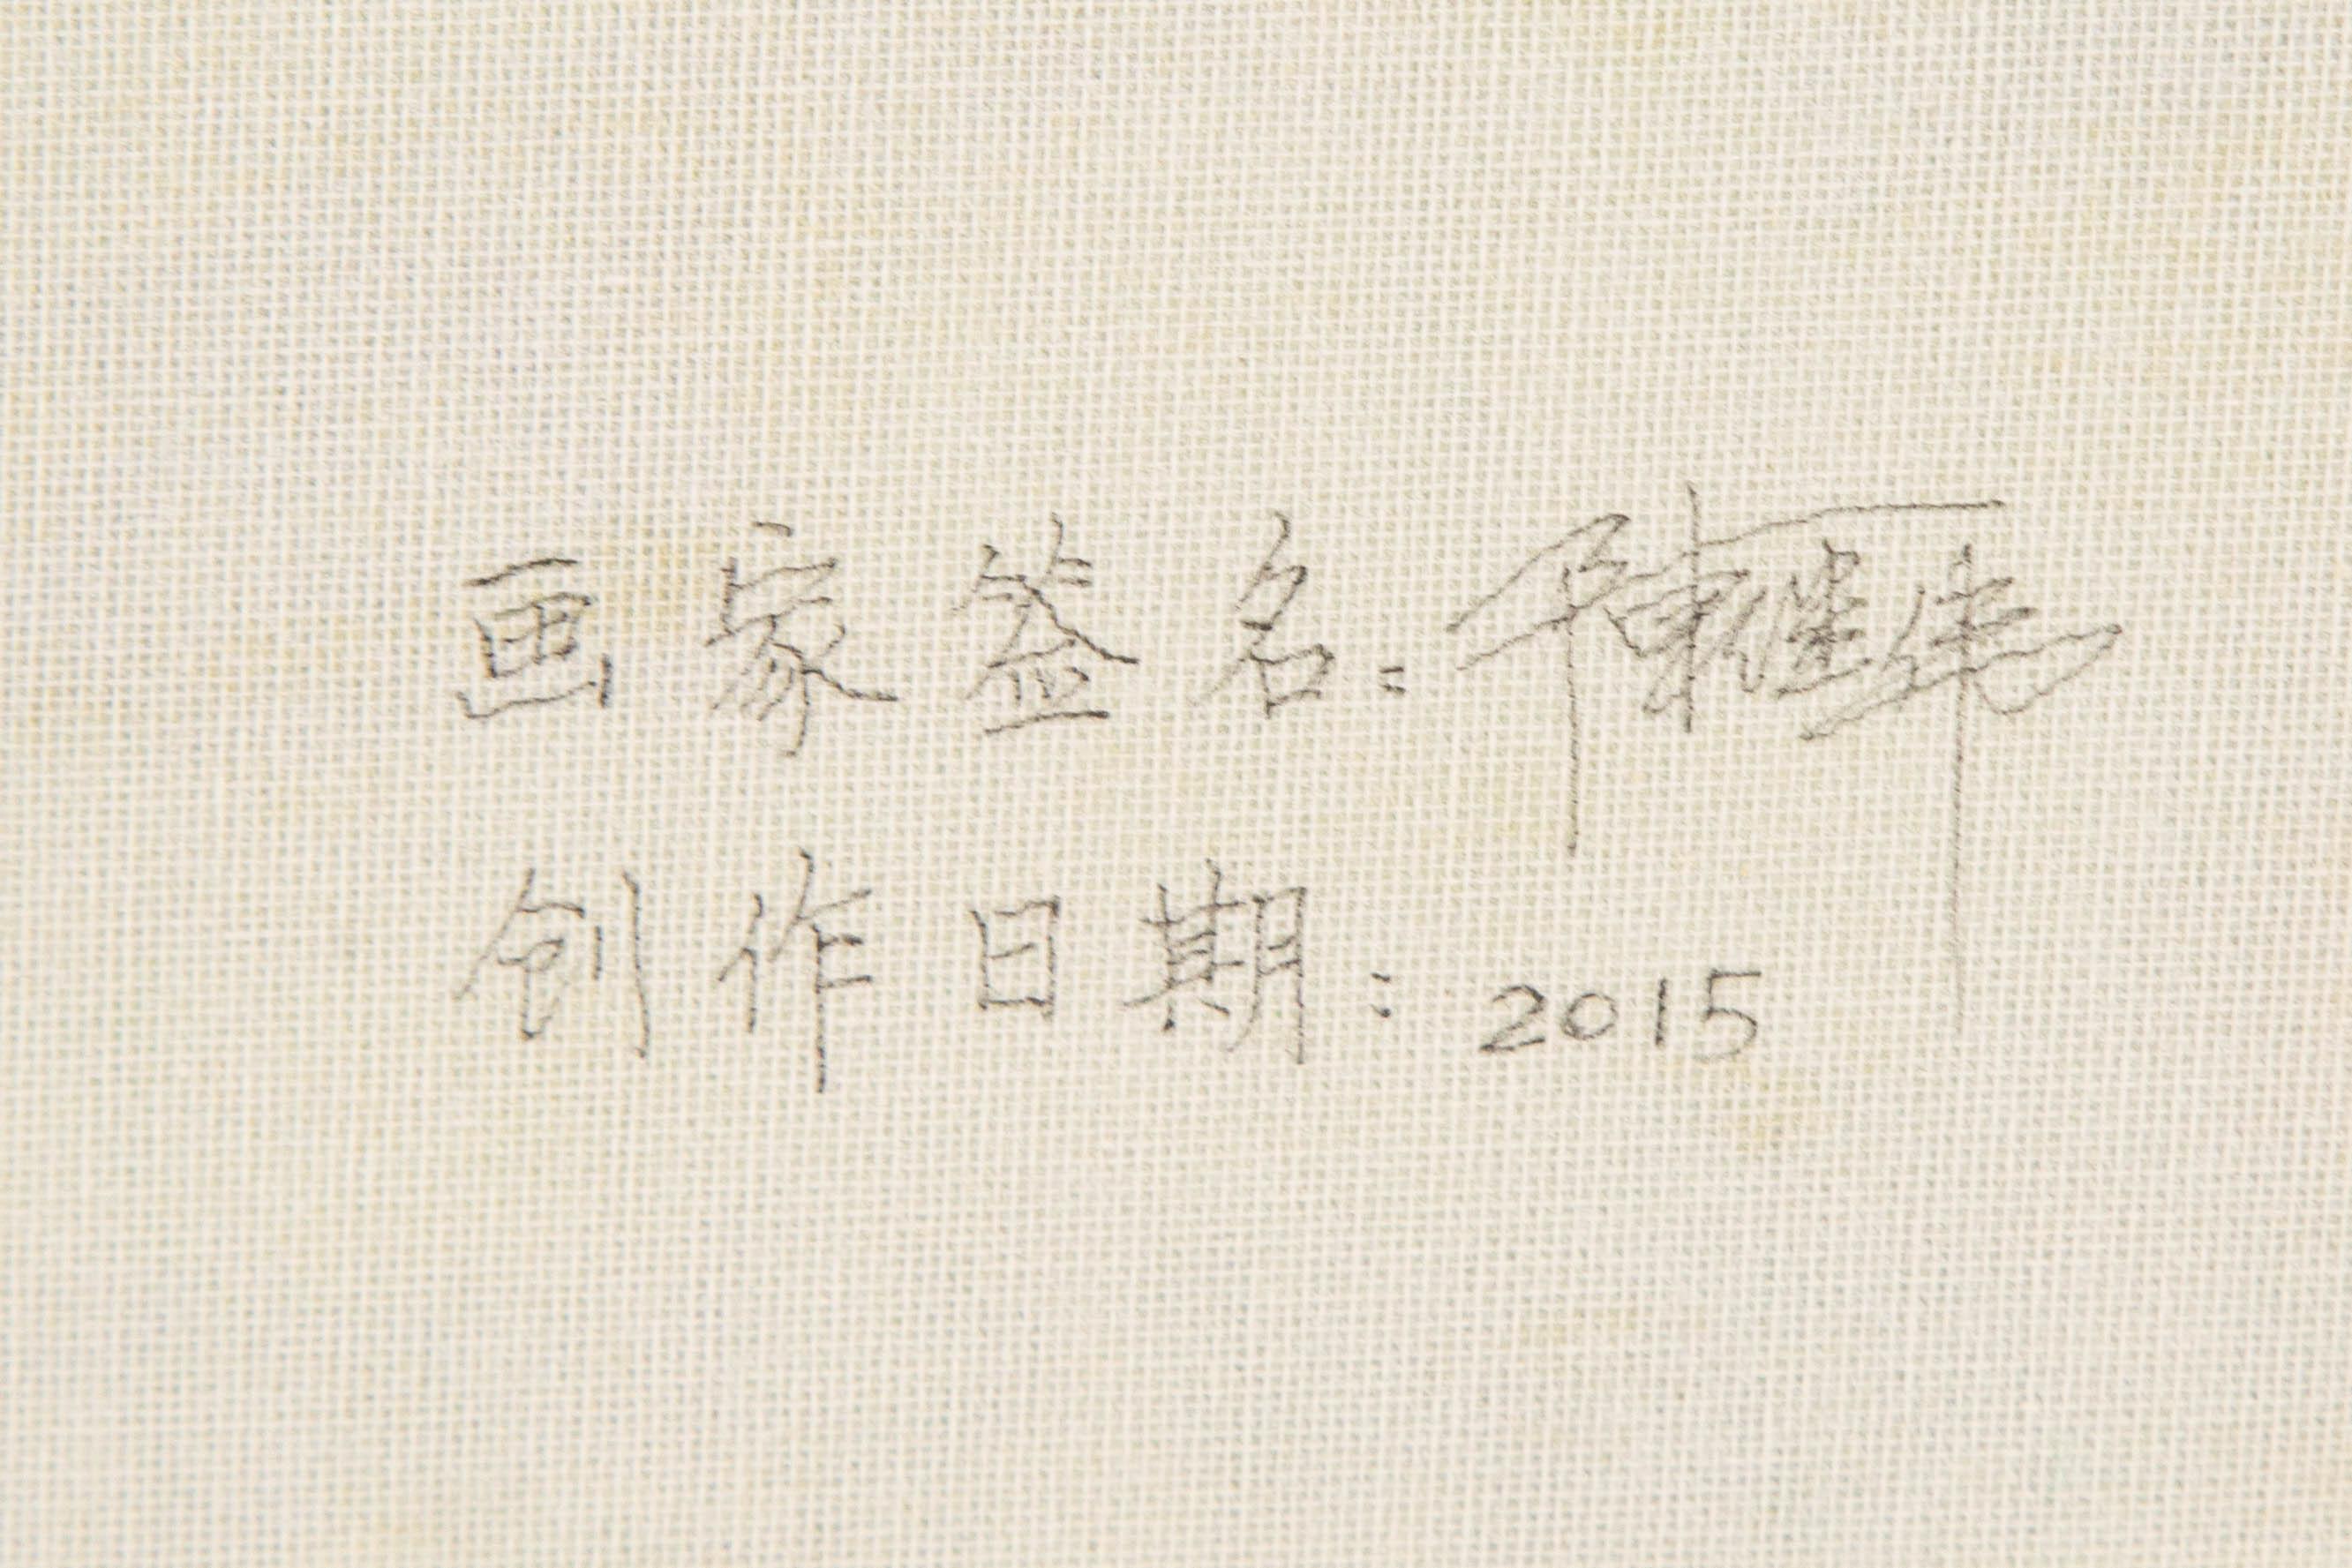 画家签名：陳
创作日期：2015